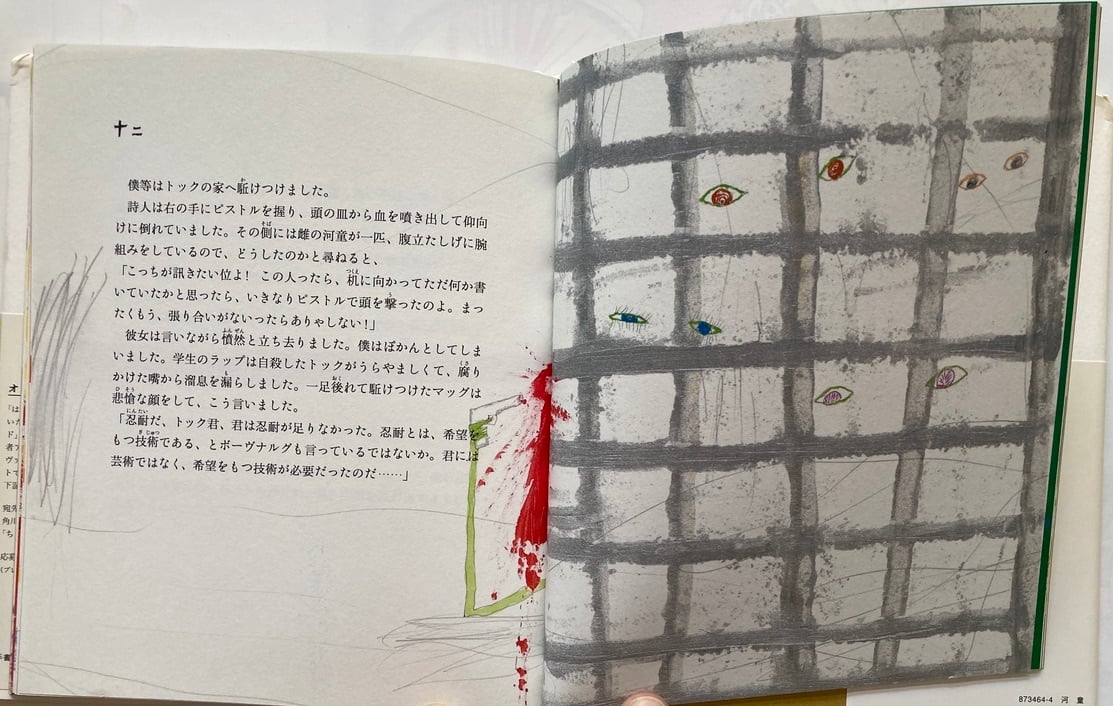 十二
僕等はトックの家へ駈けつけました。
詩人は右の手にピストルを握り、頭の皿から血を噴き出して仰向
けに倒れていました。その側には雌の河童が一匹、腹立たしげに腕
組みをしているので、どうしたのかと尋ねると、
「こっちが訊きたい位よ! この人ったら、机に向かってただ何か書
いていたかと思ったら、いきなりピストルで頭を撃ったのよ。まっ
たくもう、張り合いがないったらありゃしない!」
彼女は言いながら憤然と立ち去りました。僕はぽかんとしてしま
いました。学生のラップは自殺したトックがうらやましくて、腐り
かけた嘴から溜息を漏らしました。一足後れて駈けつけたマッグは
悲愴な顔をして、こう言いました。
「忍耐だ、トック君、君は忍耐が足りなかった。忍耐とは、希望を
もつ技術である、とボーヴナルグも言っているではないか。君には
芸術ではなく、希望をもつ技術が必要だったのだ……」
873464-4 河 童